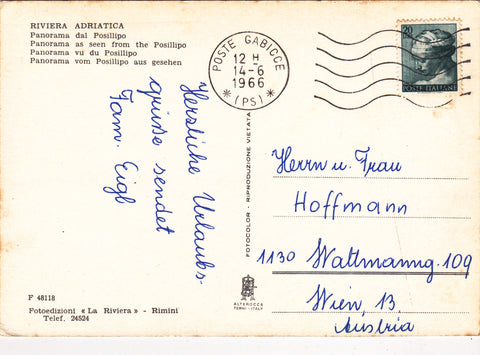 RIVIERA ADRIATICA
Panorama dal Posillipo
Panorama as seen from the Posillipo
Panorama vu du Posillipo
Panorama vom Posillipo aus gesehen
POSTE GABICCE
12 H
14-6
1966
* (PS) *
20
POSTE ITALIANE
Herzliche Urlaubs-
grüße sendet
Fam. Eigl
FOTOCOLOR - RIPRODUZIONE VIETATA
Herrn u. Frau
Hoffmann
1130 Wattmanng. 109
Wien, 13.
Austria
F 48118
Fotoedizioni « La Riviera » - Rimini
Telef. 24524
ALTEROCCA
TERNI - ITALY